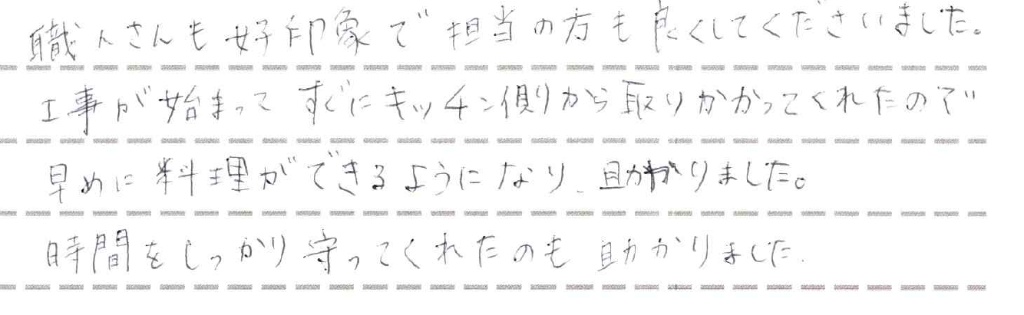 職人さんも好印象で担当の方も良くしてくださいました。
工事が始まってすぐにキッチン側から取りかかってくれたので
早めに料理ができるようになり、助かりました。
時間をしっかり守ってくれたのも助かりました.